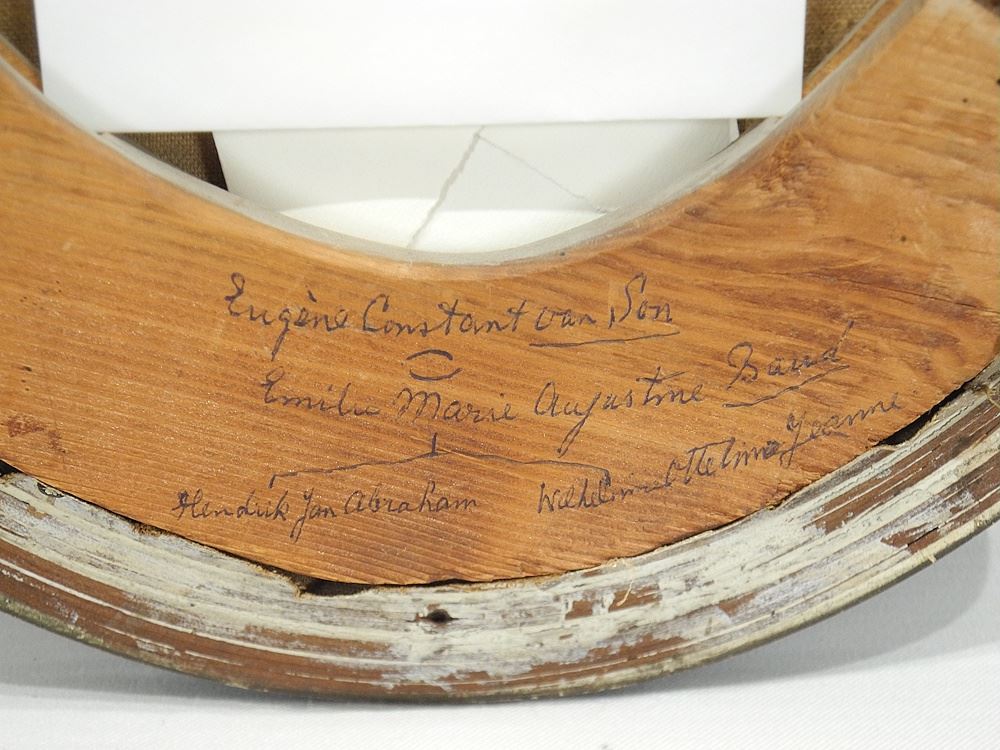 Eugène Constant van Son
Emilie Marie Augustine Baud
Hendrik Jan Abraham
Wilhelmine Otteline Jeanne